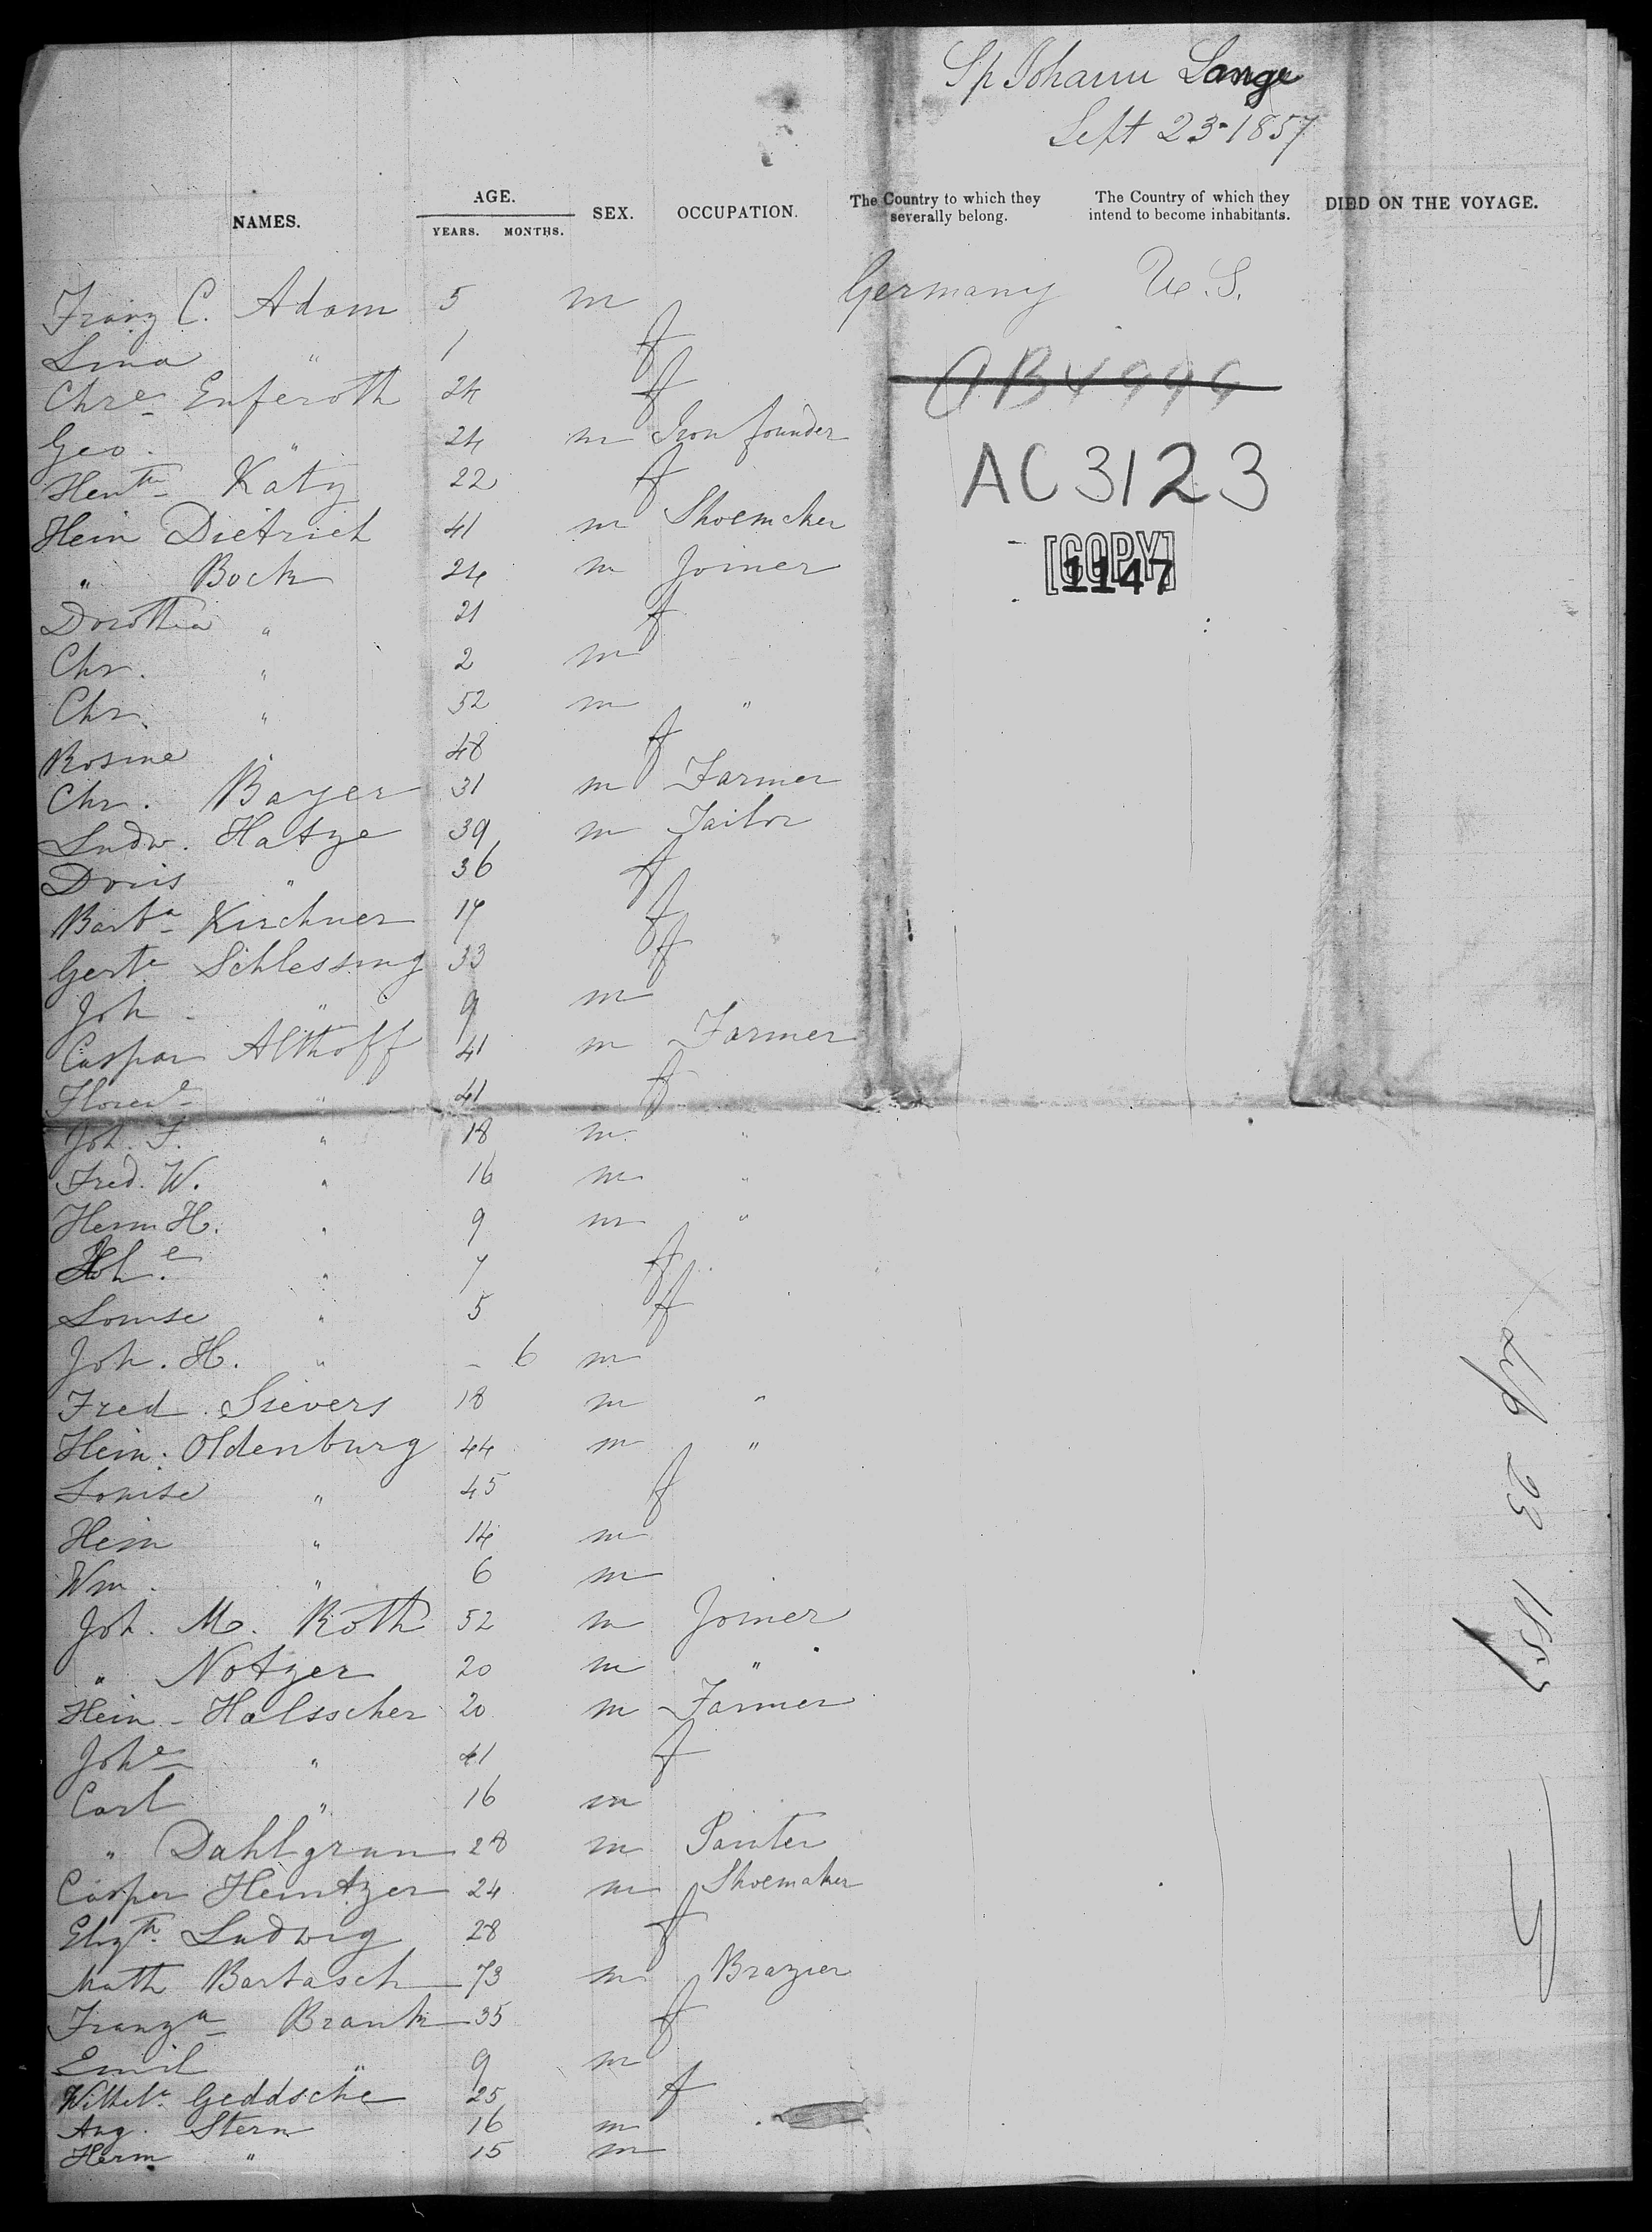 Sp Johann Lange
Sept 23-1857
NAMES. AGE. YEARS. MONTHS. SEX. OCCUPATION. The Country to which they severally belong. The Country of which they intend to become inhabitants. DIED ON THE VOYAGE.
Franz C. Adam 5 m Germany U.S.
Lina " 1 f
AB4999
Chre Enferoth 24 f
Geo. " 24 m Iron founder
AC3123
Hentte Katz 22 f
Hein Dietrich 41 m Shoemcker
[COPY]
1147
" Bock 24 m Joiner
Dorothea " 21 f
Chr. " 2 m
Chr. " 52 m "
Rosine 48 f
Chr. Bayer 31 m Farmer
Ludw. Hatze 39 m Tailor
Doris " 36 f
Barba Kirchner 17 f
Gerte Schlessing 33 f
Joh. " 9 m
Caspar Althoff 41 m Farmer
" 41 f
Joh. F. " 18 m "
Fred. W. " 16 m "
Herm H. " 9 m "
Johe " 7 f
Louise " 5 f
Joh. H. " - 6 m
Fred. Sievers 18 m "
Hein. Oldenburg 44 m "
Louise " 45 f
Hein " 14 m
Wm. " 6 m
Joh. M. Roth 52 m Joiner
" Notzer 20 m "
Hein - Halsscher 20 m Farmer
Johe " 41 f
Carl " 16 m
" Dahlgrun 28 m Painter
Casper Heintzer 24 m Shoemaker
Elizth Ludwig 28 f
Math Bartasch 73 m Brazier
Franza Brank 35 f
Emil " 9 m
Wilhele Geddsche 25 f
Aug. Stern 16 m
Herm " 15 m
Sep 23 1857